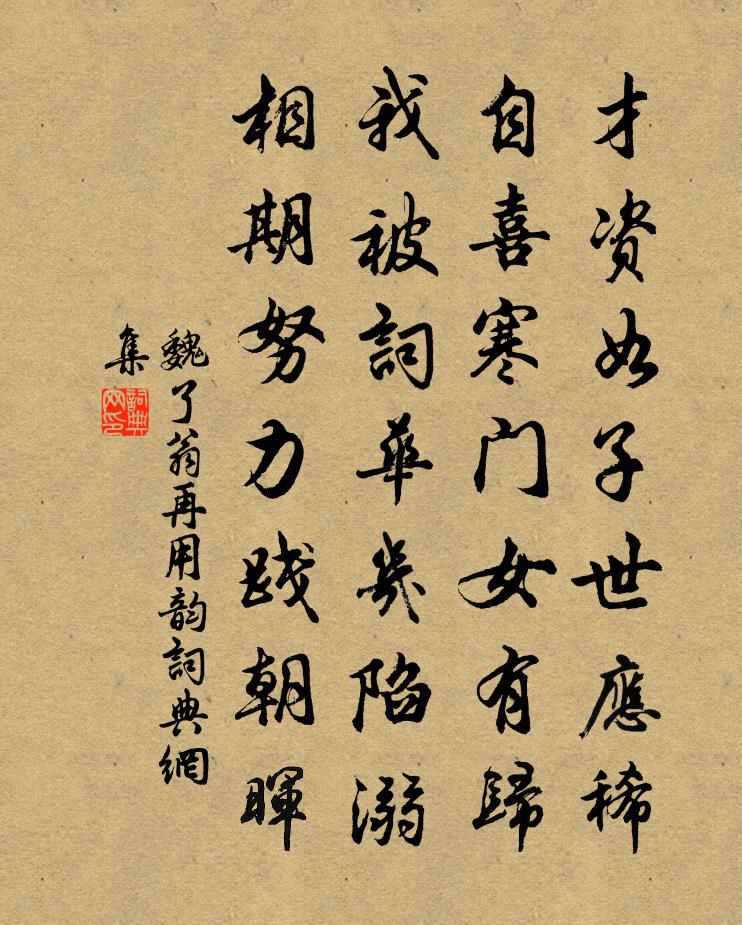 才資如子世應稀
自喜寒門女有歸
我被詞華幾陷溺
相期努力踐朝暉
魏了翁再用韵詞典網
集
詞典
网印